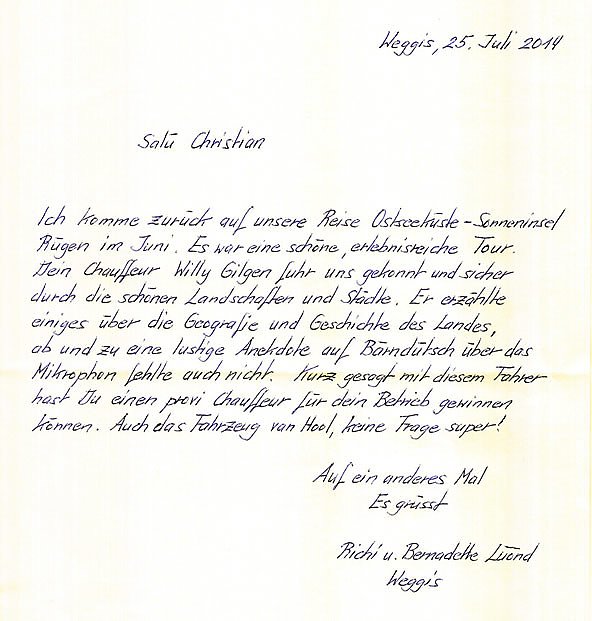 Weggis, 25. Juli 2014
Salü Christian
Ich komme zurück auf unsere Reise Ostseeküste - Sonneninsel
Rügen im Juni. Es war eine schöne, erlebnisreiche Tour.
Dein Chauffeur Willy Gilgen fuhr uns gekonnt und sicher
durch die schönen Landschaften und Städte. Er erzählte
einiges über die Geografie und Geschichte des Landes,
ab und zu eine lustige Anekdote auf Bärndütsch über das
Mikrophon fehlte auch nicht. Kurz gesagt mit diesem Fahrer
hast Du einen provi Chauffeur für dein Betrieb gewinnen
können. Auch das Fahrzeug van Hool, keine Frage super!
Auf ein anderes Mal
Es grüsst
Richi u. Bernadette Lüönd
Weggis